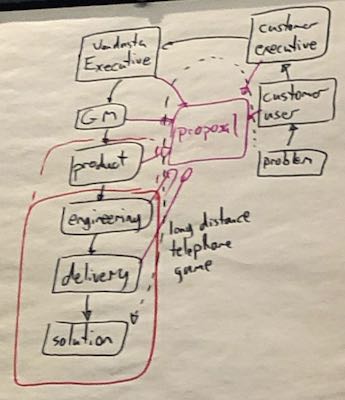 Vendasta
Executive
customer
executive
GM
proposal
customer
user
product
problem
engineering
long distance
telephone
game
delivery
solution